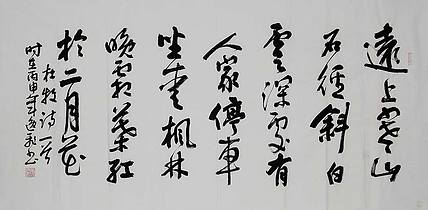 遠上寒山
石徑斜白
雲深處有
人家停車
坐愛楓林
晚霜葉紅
於二月花
杜牧詩一首
时在丙申年书